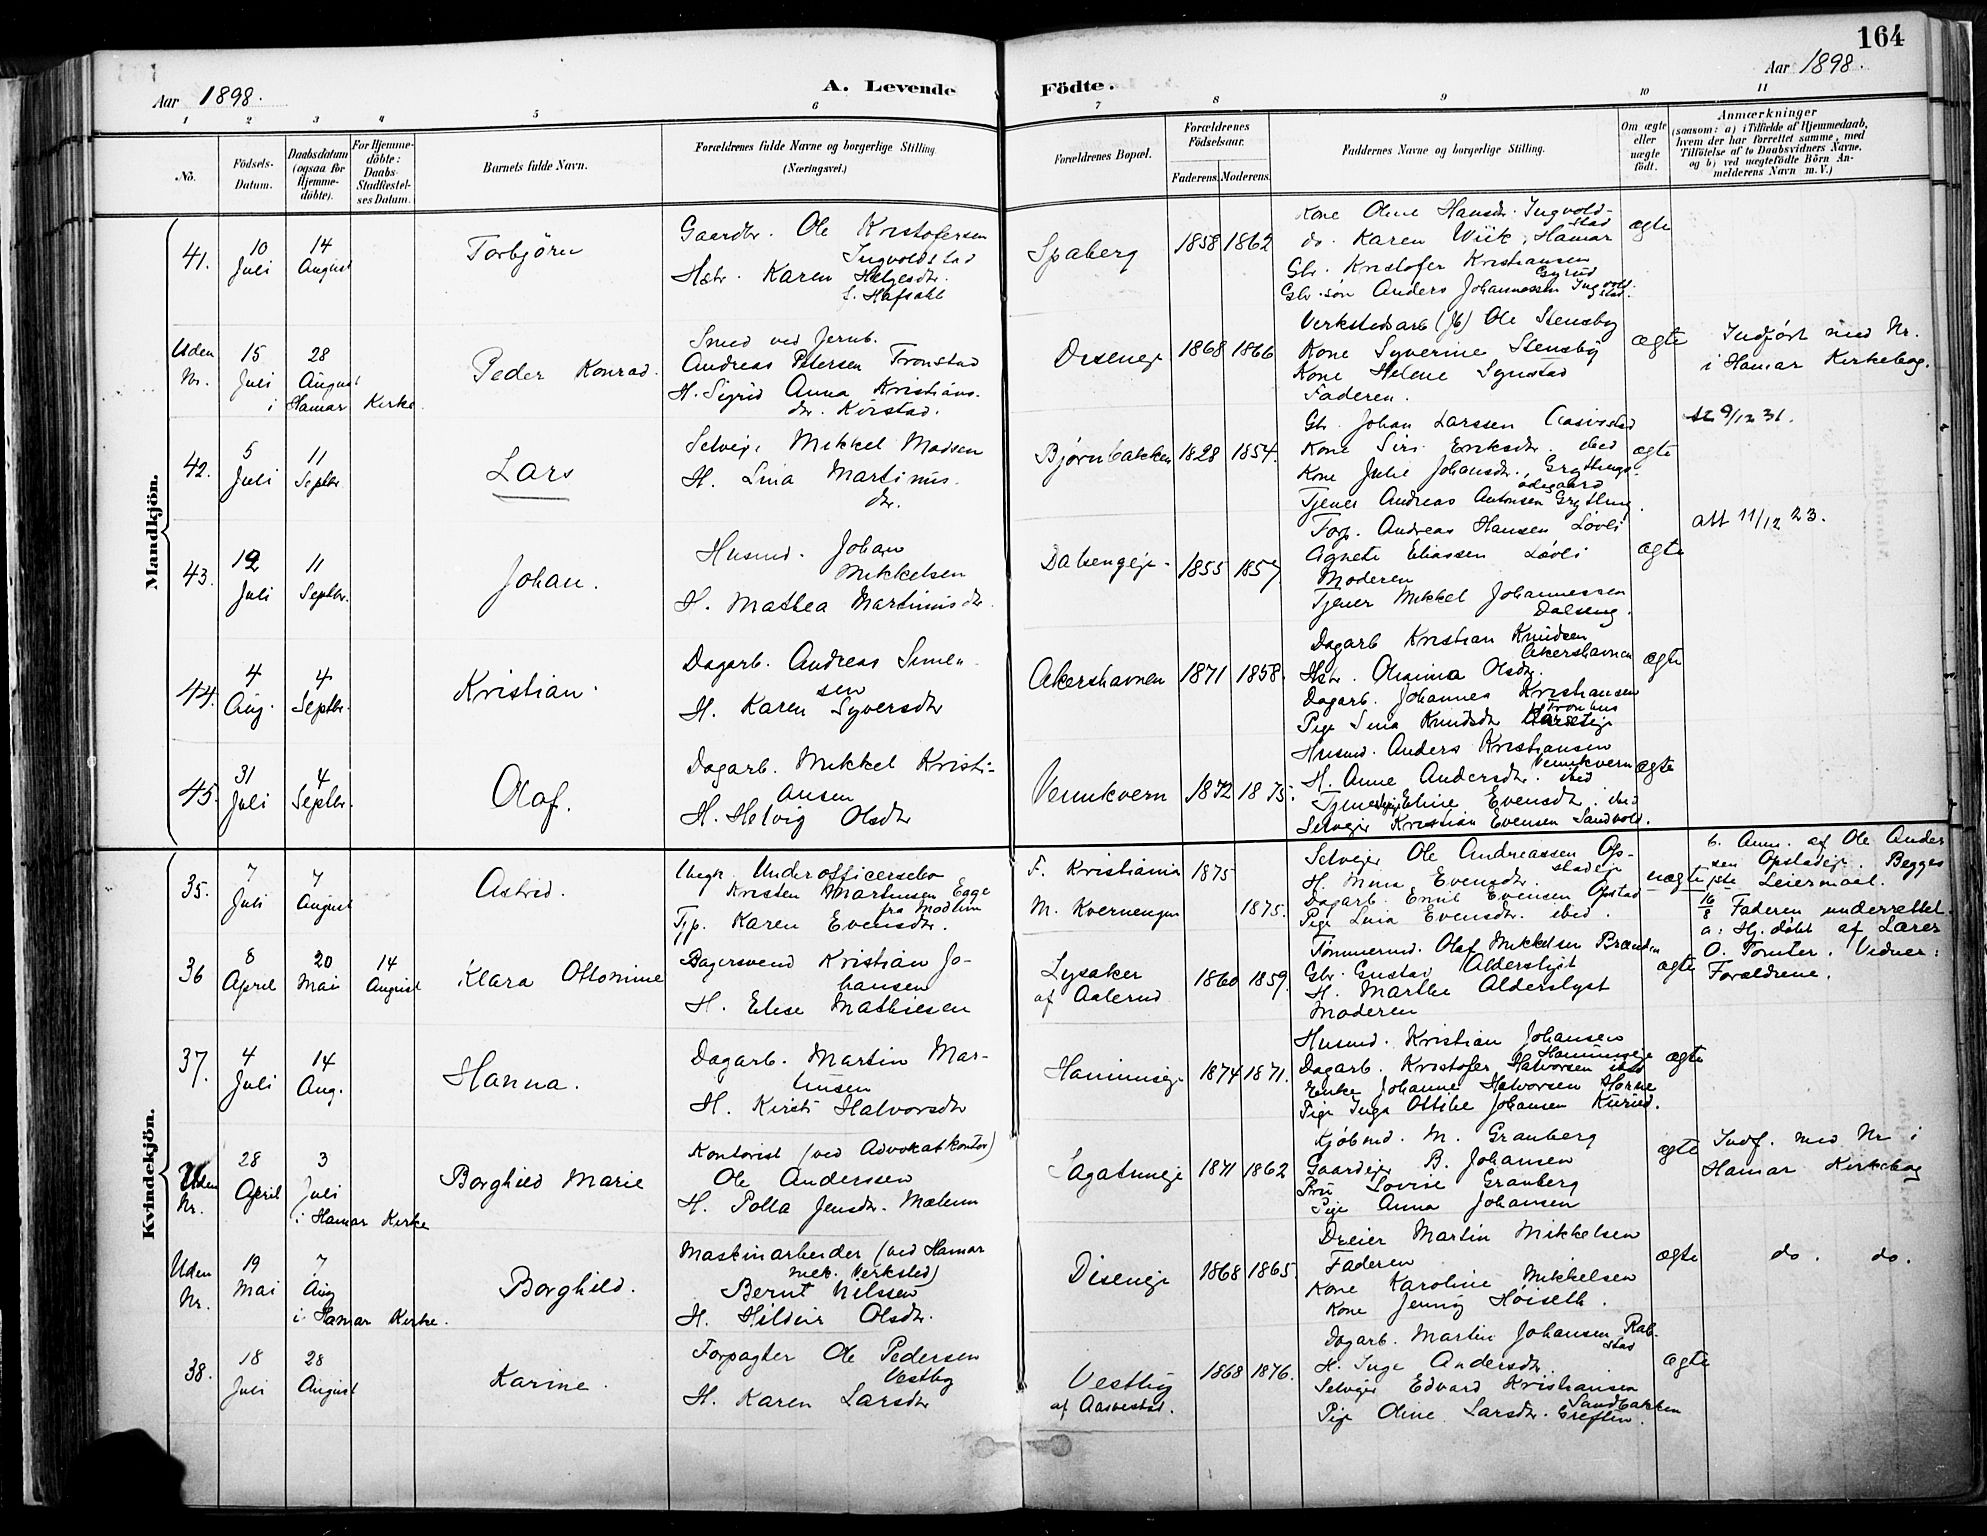 164
Aar 1898.
A. Levende Födte.
Aar 1898.
1 2 3 4 5 6 7 8 9 10 11
No.
Födsels-
Datum.
Daabsdatum
(ogsaa for
Hjemme-
döbte).
For Hjemme-
döbte:
Daabs-
Stadfæstel-
ses Datum.
Barnets fulde Navn.
Forældrenes fulde Navne og borgerlige Stilling
(Næringsvei.)
Forældrenes Bopæl.
Forældrenes
Födselsaar.
Faderens. Moderens.
Faddernes Navne og borgerlige Stilling.
Om ægte
eller
uægte
födt.
Anmærkninger
(saasom: a) i Tilfælde af Hjemmedaab,
hvem der har forrettet samme, med
Tilföielse af to Daabsvidners Navne,
og b) ved uægtefödte Börn An-
melderens Navn m. V.)
Mandkjön.
41.
10
Juli
14
August
Torbjörn
Gaardbr. Ole Kristofersen
Ingvoldstad
Hstr. Karen Helgesdtr.
f. Hafsahl
Spaberg
1858 1862
Kone Oline Hansdr. Ingvold-
stad
do. Karen Wiik, Hamar
Gbr. Kristofer Kristiansen
Gyrud
Gbr. søn Anders Johannessen Ingvold
stad.
ægte
Uden
Nr.
15
Juli
28
August
i Hamar Kirke.
Peder Konrad.
Smed ved Jernb.
Andreas Petersen Tronstad
H. Sigrid Anna Kristians.
dtr. Kirstad.
Diseneje
1868 1866
Verkstedsarb (Jb) Ole Stensby
Kone Syverine Stensby
Kone Helene Synstad
Faderen.
ægte
Indført med Nr.
i Hamar Kirkebog.
42.
5
Juli
11
Septbr.
Lars
Selvej. Mikkel Madsen
H. Lina Martinus.
dr.
Bjørnbakken
1828 1854.
Gb. Johan Larssen
Kone Siri Eriksdr. ibid
Kone Julie Johansdr. Gryttings-
ødegaard
Tjener Andreas Antonsen Grytting.
ægte
9/12 31.
43.
12
Juli
11
Septbr.
Johan.
Husmd. Johan
Mikkelsen
H. Mathea Martinusdtr.
Dalsengeje.
1855 1857
Forp. Andreas Hansen Løvli
Agnete Eliassen Løvli
Moderen
Tjener Mikkel Johannessen
Dalseng.
ægte
att 11/12 23.
44.
4
Aug.
4
Septbr.
Kristian.
Dagarb. Andreas Simen-
sen
H. Karen Syversdtr
Akershavnen
1871 1858.
Dagarb Kristian Knudsen
Akershavnen
Hstr. Olsdtr.
Dagarb. Johannes Kristiansen
Tronhus
Pige Sina Knudsdtr
ægte
45.
31
Juli
4
Septbr.
Olaf.
Dagarb. Mikkel Kristi-
ansen
H. Helvig Olsdtr
Vennkvern
1872 1875.
Husmd. Anders Kristiansen
Vennkvern
H. Anne Andersdtr. ibid
Eline Evensdtr. ibid
Selvejer Kristian Evensen Sandvold.
ægte
Kvindekjön.
35.
7
Juli
7
August
Astrid.
Ubegr. Underofficerselev
Kristen Martinsen Egge
fra Modum
Tjp. Karen Evensdtr.
F. Kristiania
M. Kvernengen
1875
1875.
Selvejer Ole Andreassen Op-
stadeje
H. Mina Evensdtr.
Dagarb. Emil Evensen Opstad
Pige Lina Evensdtr. ibid.
uægte
b. Anm. af Ole Ander
sen Opstadeje. Begges
1ste Leiermaal.
16/8 Faderen underrettet.
36
8
April
20
Mai
14
August
Klara Ottomine
Bagersvend Kristian Jo-
hansen
H. Elise Mathiesen
Lysaker
af Aalerud
1860 1859.
Tømmermd. Olaf Mikkelsen Brænden
Gbr. Gustav Alderslyst
H. Marthe Alderslyst
Moderen
ægte
a: Hj. døbt af Lærer
O. Tomter. Vidner:
Forældrene.
37.
4
Juli
14
Aug.
Hanna.
Dagarb. Martin Mar-
tinsen
H. Kirsti Halvorsdtr
Hommseje
1874 1871.
Husmd. Kristian Johansen
Hommseje
Dagarb. Kristofer Halvorsen ibid
Enke Johanne Halvorsen Horne
Pige Inga Ottilie Johansen Kurud.
ægte
Uden
Nr.
28
April
3
Juli
i Hamar Kirke
Borghild Marie
Kontorist (ved Advokatkontor)
Ole Anderssen
H. Polla Jensdtr. Mælum
Sagatuneje
1871 1862
Kjøbmd. M. Granberg
Gaardejer B. Johansen
Fru Lovise Granberg
Pige Anna Johansen
ægte
Indf. med Nr i
Hamar Kirkebog
Uden
Nr.
19
Mai
7
Aug
i Hamar Kirke.
Borghild.
Maskinarbeider (ved Hamar
mek. Verksted)
Bernt Nilssen
H. Hildur Olsdtr.
Diseneje
1868 1865.
Dreier Martin Mikkelsen
Faderen
Kone Karoline Mikkelsen
Kone Jenny Høiseth.
ægte
do. do.
38.
18
Juli
28
August
Karine.
Forpagter Ole Pedersen
Vestby
H. Karen Larsdtr
Vestby
af Aasvestad.
1868 1876.
Dagarb. Martin Johansen Rab-
stad
H. Inge Andersdtr.
Selvejer Edvard Kristiansen
Sandbakken
Pige Oline Larsdtr. Greftin.
ægte